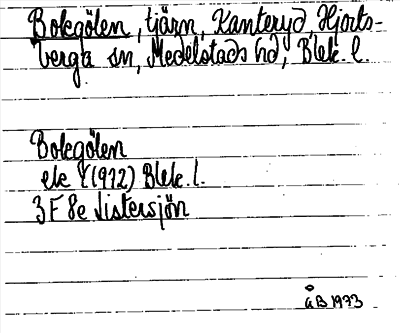 Bolegölen, tjärn, Kanteryd, Hjorts-
berga sn, Medelstads hd, Blek. l.
Bolegölen
ek Y (912) Blek. l.
3F 8e Listersjön
ÅB 1973